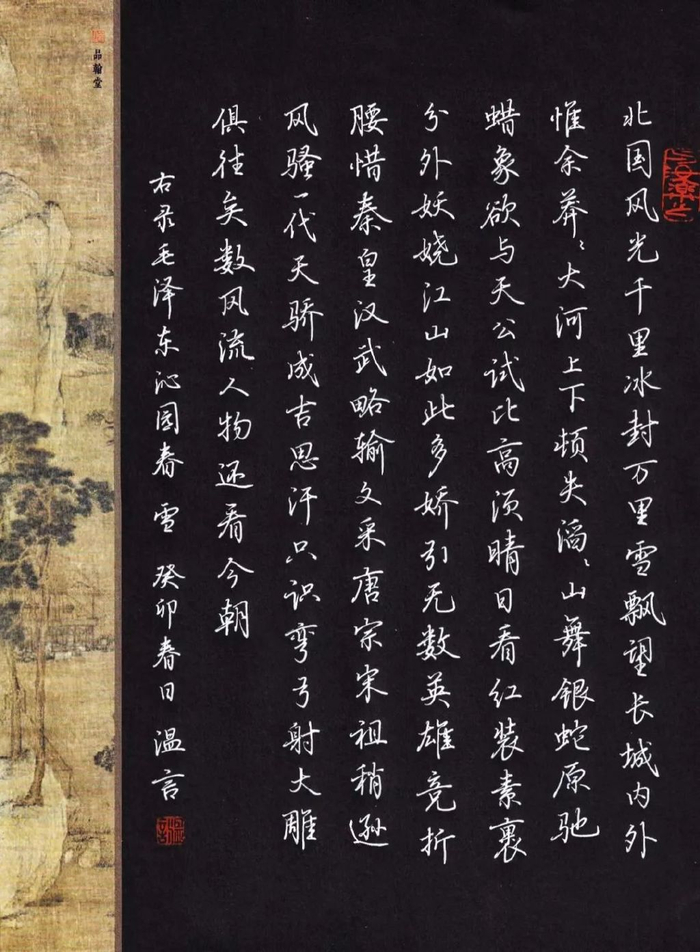 北国风光千里冰封万里雪飘望长城内外
惟余莽〻大河上下顿失滔〻山舞银蛇原驰
蜡象欲与天公试比高须晴日看红装素裹
分外妖娆江山如此多娇引无数英雄竞折
腰惜秦皇汉武略输文采唐宗宋祖稍逊
风骚一代天骄成吉思汗只识弯弓射大雕
俱往矣数风流人物还看今朝
右录毛泽东沁园春 雪 癸卯春日 温言
品翰堂